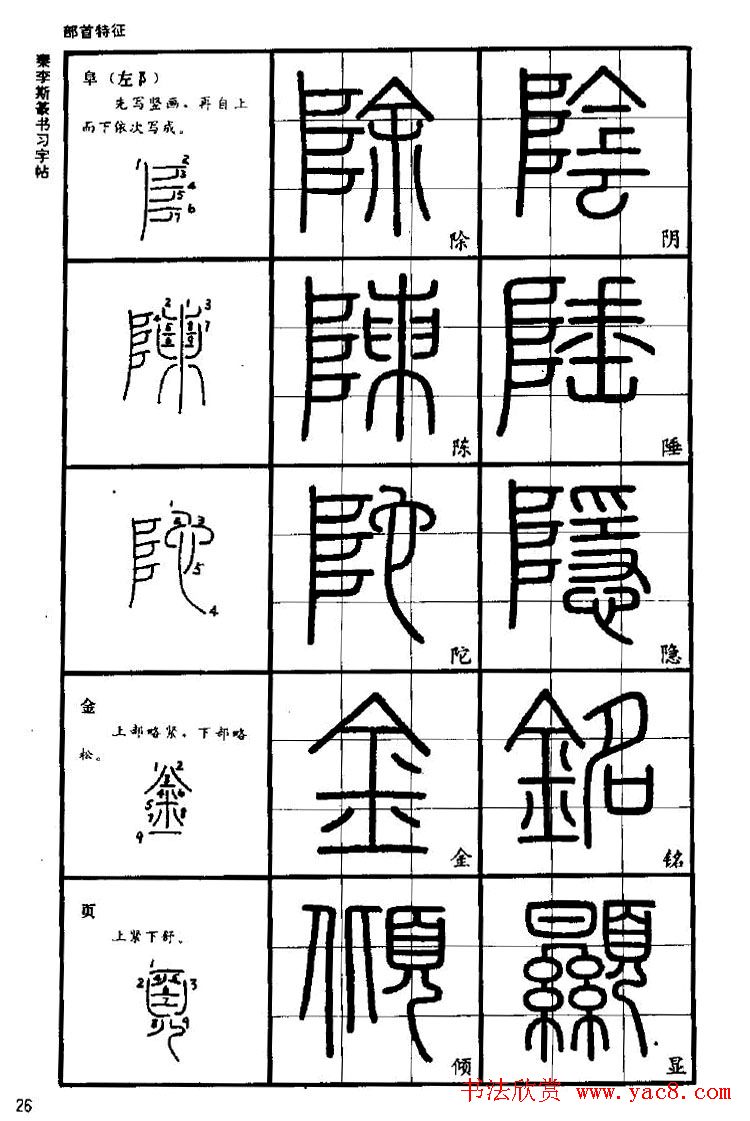 部首特征
秦李斯篆书习字帖
阜（左阝）
先写竖画，再自上
而下依次写成。
1 2 3 4 5 6 7
除
阴
陈
陲
陀
隐
金
上部略紧，下部略
松。
金
铭
页
上紧下舒。
倾
显
26
书法欣赏 www.yac8.com